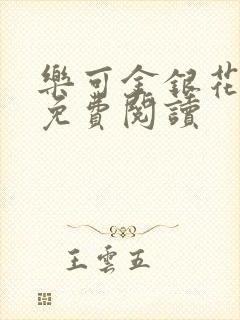 樂可金銀花
免費閱讀
王雲五